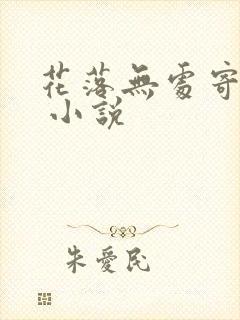 花落無處寄
小說
朱愛民